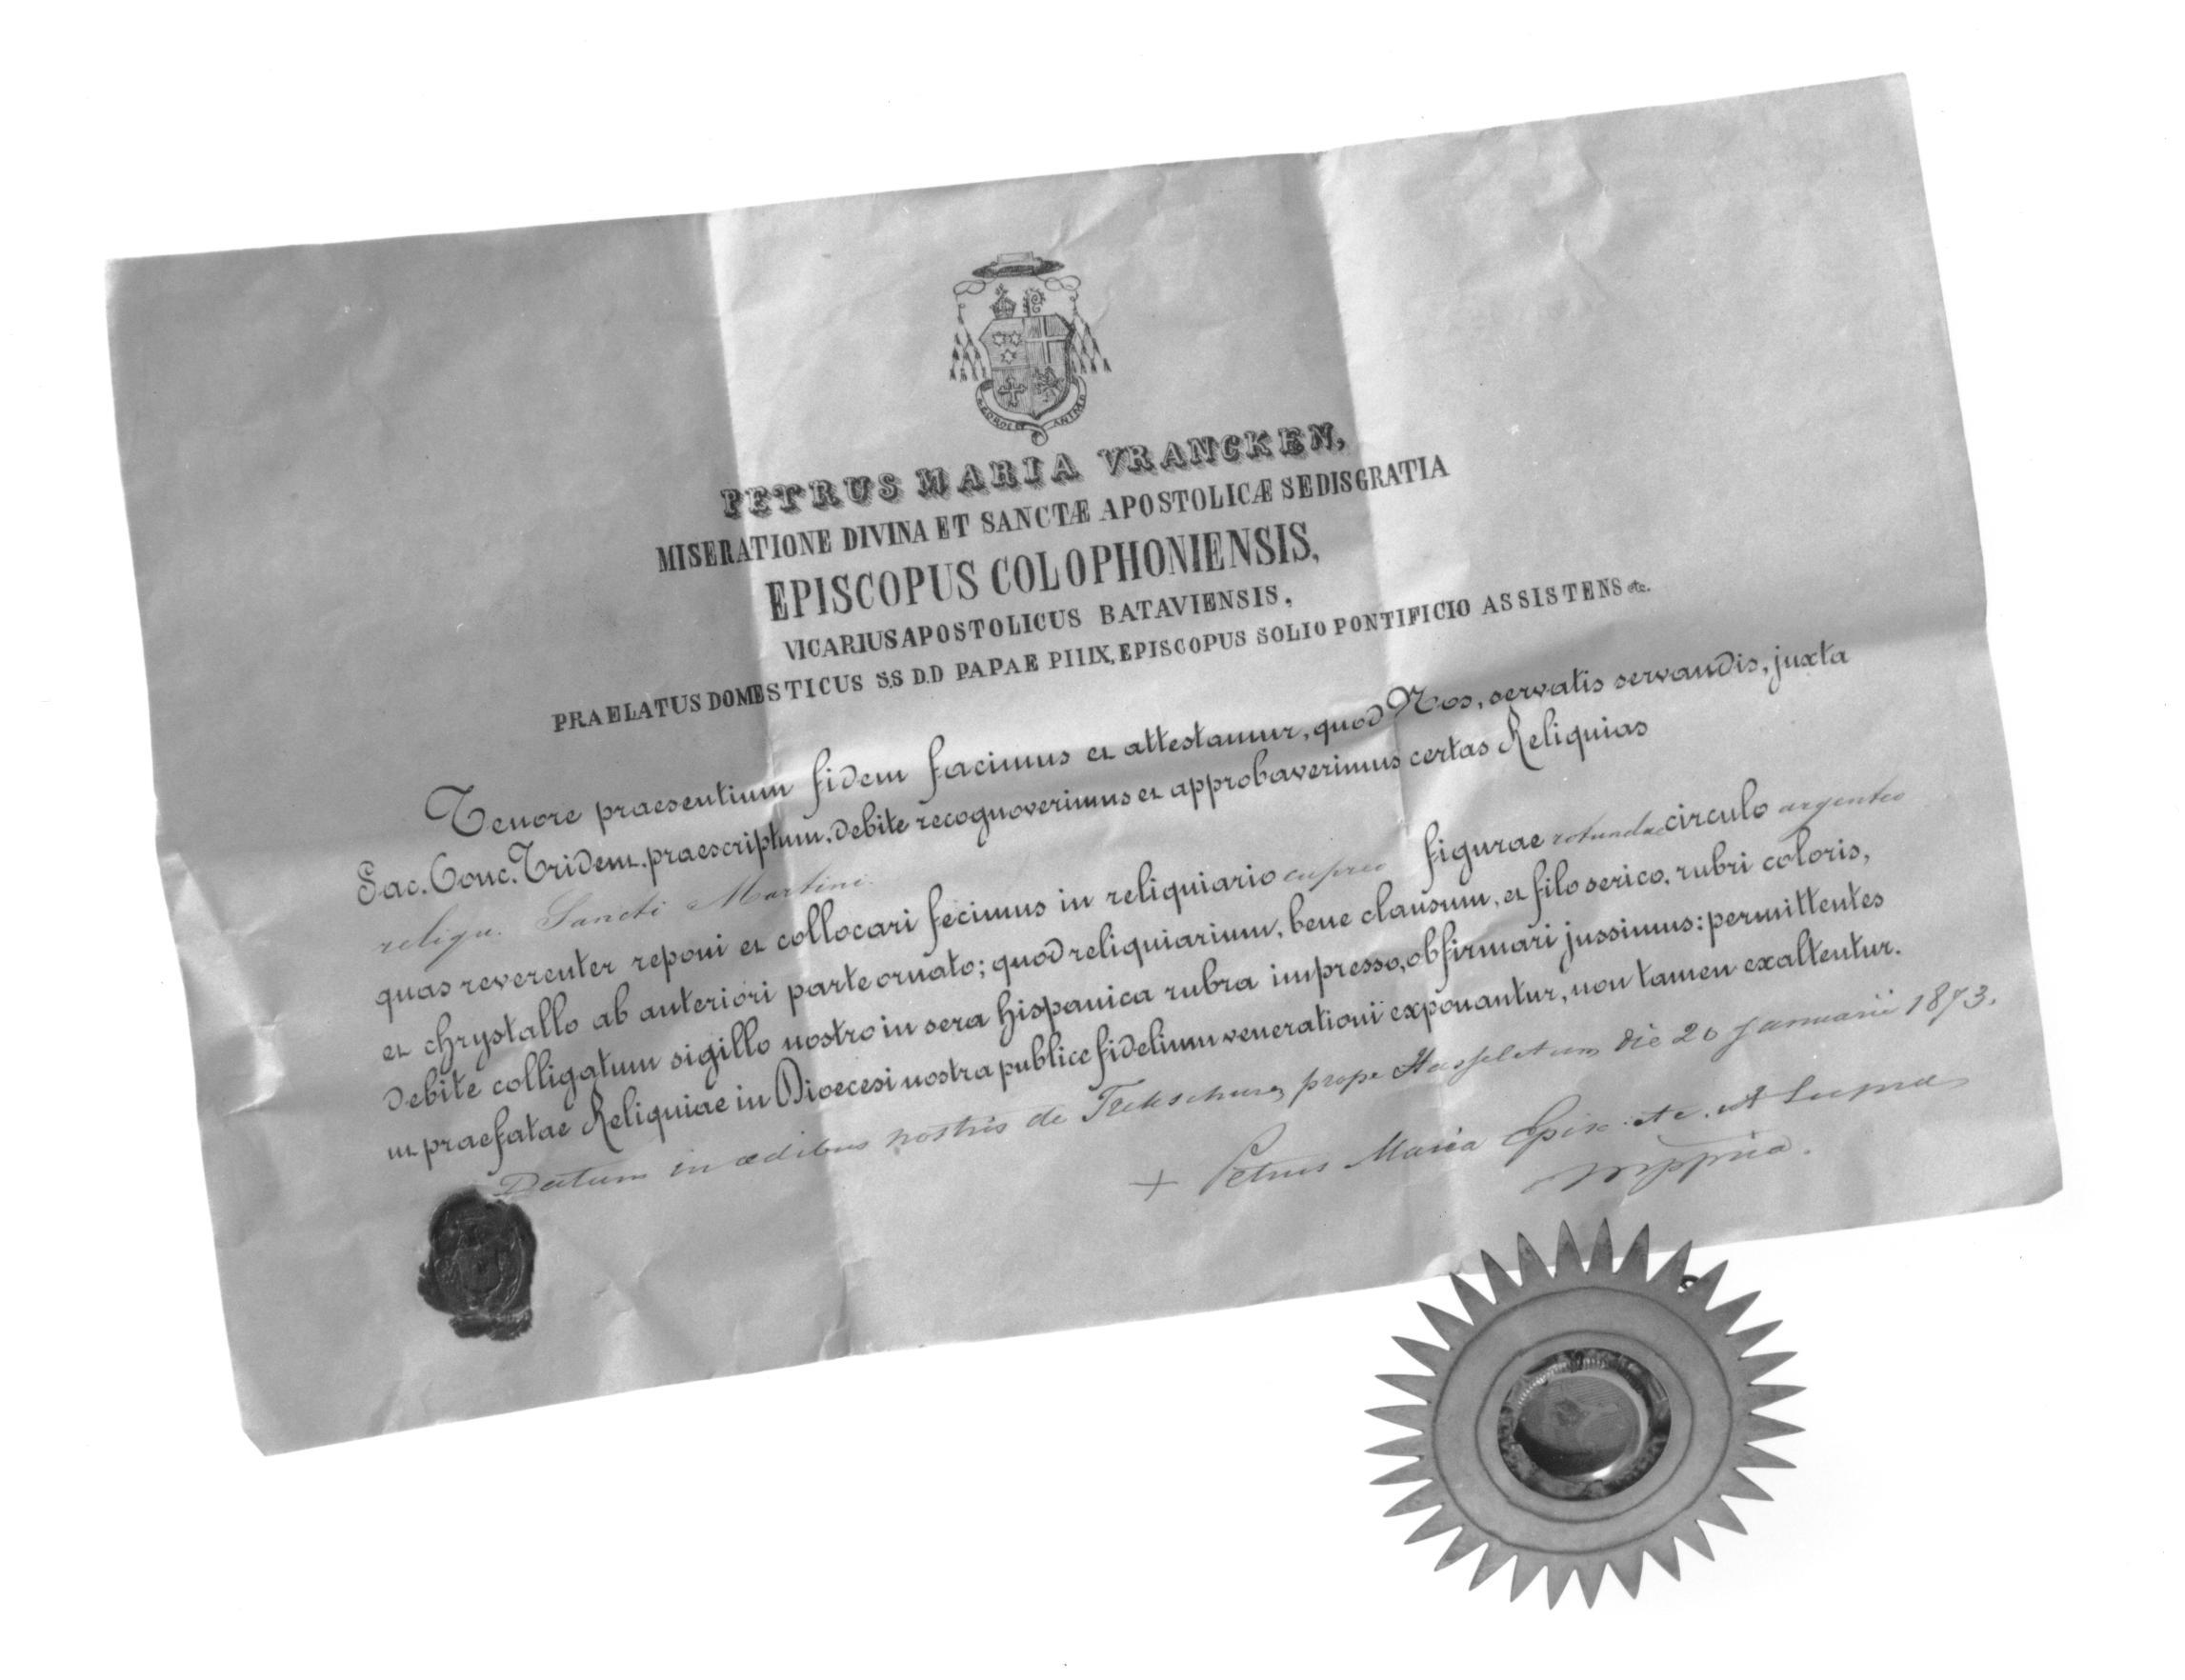 PETRUS MARIA VRANCKEN,
MISERATIONE DIVINA ET SANCTÆ APOSTOLICÆ SEDIS GRATIA
EPISCOPUS COLOPHONIENSIS,
VICARIUS APOSTOLICUS BATAVIENSIS,
PRAELATUS DOMESTICUS S.S D.D PAPAE PII IX, EPISCOPUS SOLIO PONTIFICIO ASSISTENS etc.
Tenore praesentium fidem facimus et attestamur, quod Nos, servatis servandis, juxta
Sac. Conc. Trident. praescriptum, debite recognoverimus et approbaverimus certas Reliquias
reliqu. Sancti Martini
quas reverenter reponi et collocari fecimus in reliquiario cupreo figurae rotundae circulo argenteo
et chrystallo ab anteriori parte ornato; quod reliquiarium, bene clausum, et filo serico, rubri coloris,
debite colligatum sigillo nostro in sera hispanica rubra impresso, obfirmari jussimus: permittentes
ut praefatae Reliquiae in Dioecesi nostra publice fidelium venerationi exponantur, non tamen exaltentur.
Datum in ædibus nostris de prope Hasseletum die 20 Januarii 1873.
+ Petrus Maria Episc. etc. ut Supra
mppria.